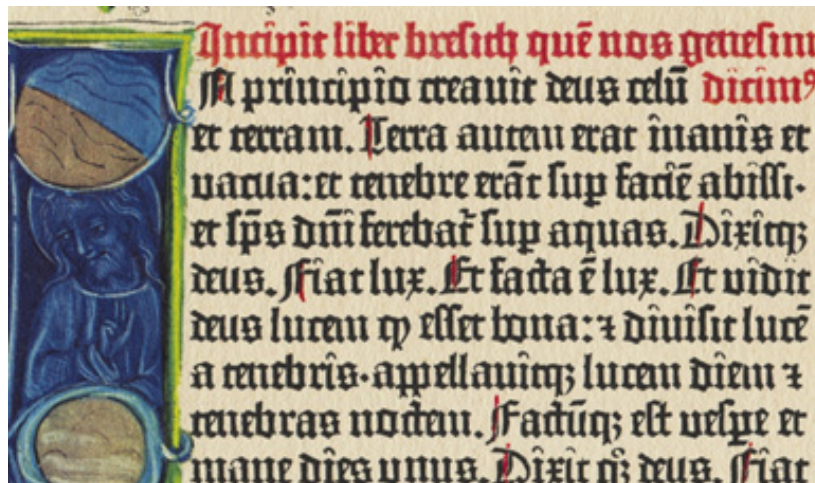 Incipit liber bresich quē nos genesim
A principio creauit deus celū dicimꝰ
et terram. Terra autem erat inanis et
uacua: et tenebre erāt suꝑ faciē abissi·
et sp̄s dn̄i ferebat᷑ suꝑ aquas. Dixitqꝫ
deus. Fiat lux. Et facta ē lux. Et uidit
deus lucem ꝙ esset bona: ⁊ diuisit lucē
a tenebris· appellauitqꝫ lucem diem ⁊
tenebras noctem. Factūqꝫ est uesꝑe et
mane dies unus. Dixit qꝫ̄ deus. Fiat